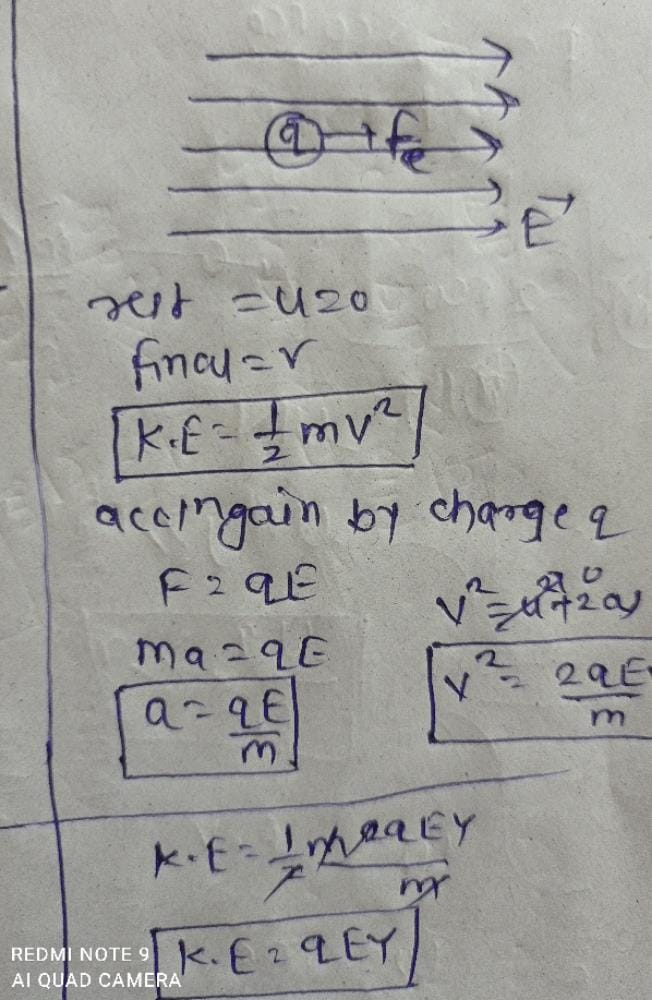 q → Fe
E→
rest = u=0
final = v
K.E = 1/2 mv²
accⁿ gain by charge q
F = qE
ma = qE
a = qE/m
v² = u² + 2a
v² = 2qE/m
K.E = 1/2 m 2qEY/m
K.E = qEY
REDMI NOTE 9
AI QUAD CAMERA